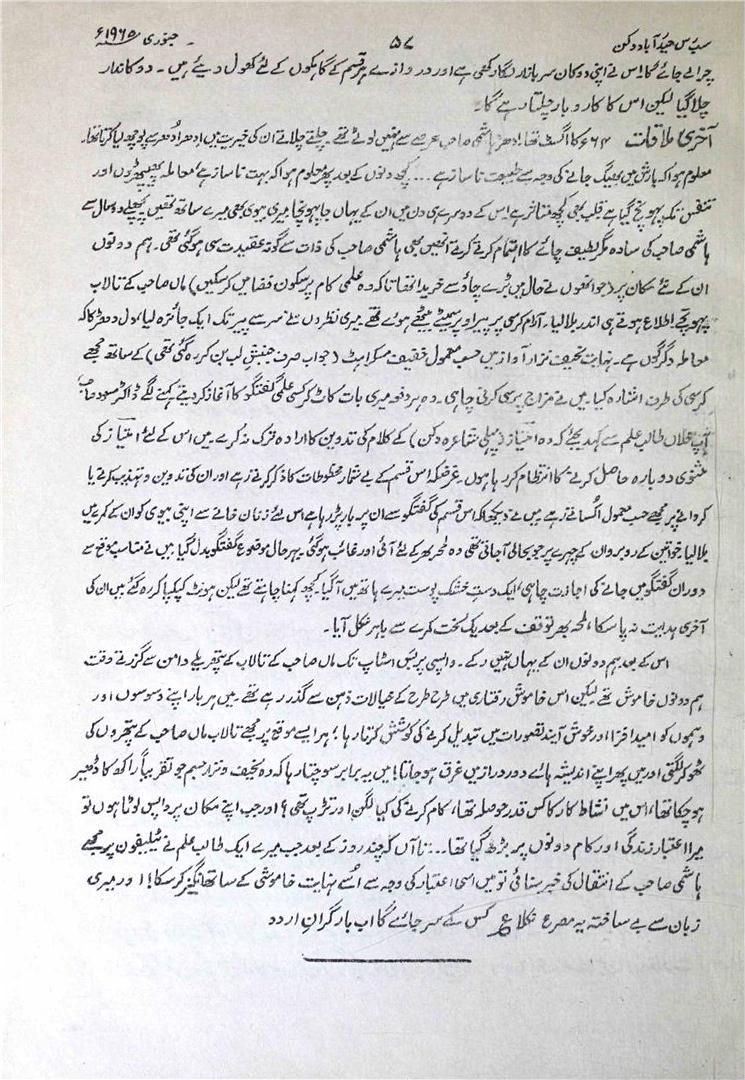 سب رس حیدرآباد دکن ۵۷ جنوری ۱۹۶۵ء
چرالے جائے گا! اس نے اپنی دوکان سربازار لگا رکھی ہے اور دروازے ہر قسم کے گاہکوں کے لئے کھول دیئے ہیں۔ دوکاندار
چلا گیا لیکن اس کا کاروبار چلتا رہے گا۔
آخری ملاقات ۶۴ء کا اگست تھا! ادھر ہاشمی صاحب عرصے سے نہیں لوٹے تھے۔ چلتے چلاتے ان کی خیریت میں ادھر اُدھر سے پوچھ لیا کرتا تھا۔
معلوم ہوا کہ بارش میں بھیگ جانے کی وجہ سے طبیعت ناساز ہے... کچھ دنوں کے بعد پھر معلوم ہوا کہ بہت ناساز ہے، معاملہ پھیپھڑوں اور
تنفس تک پہونچ گیا ہے قلب بھی کچھ متاثر ہے اس کے دوسرے ہی دن میں ان کے یہاں جا پہونچا، میری بیوی بھی میرے ساتھ تھیں پچھلے دو سال سے
ہاشمی صاحب کی سادہ مگر لطیف چائے کا اہتمام کرتے کرتے انھیں بھی ہاشمی صاحب کی ذات سے گونہ عقیدت سی ہو گئی تھی۔ ہم دونوں
ان کے نئے مکان پر (جو انھوں نے حال میں بڑے چاؤ سے خریدا تھا تاکہ وہ علمی کام پرسکون فضا میں کرسکیں) ماں صاحب کے تالاب
پہونچے اطلاع ہوتے ہی اندر بلالیا۔ آرام کرسی پر پیر اوپر سمیٹے بیٹھے ہوئے تھے میری نظروں نے سر سے پیر تک ایک جائزہ لیا، دل دھڑکا کہ
معاملہ دگرگوں ہے۔ نہایت نحیف نزار آواز میں حسب معمول خفیف مسکراہٹ (جو اب صرف جنبشِ لب بن کر رہ گئی تھی) کے ساتھ مجھے
کرسی کی طرف اشارہ کیا۔ میں نے مزاج پرسی کرنی چاہی۔ وہ ہر دفعہ میری بات کاٹ کر کسی علمی گفتگو کا آغاز کردیتے کہنے لگے ڈاکٹر مسعود صاحب
آپ فلاں طالب علم سے کہہ دیجئے کہ وہ امتیاز (پہلی شاعرہ دکن) کے کلام کی تدوین کا ارادہ ترک نہ کرے میں اس کے لئے امتیاز کی
مثنوی دوبارہ حاصل کرنے کا انتظام کر رہا ہوں۔ غرضکہ اس قسم کے بے شمار مخطوطات کا ذکر کرتے رہے اور ان کی تدوین و تہذیب کرنے یا
کروانے پر مجھے حسب معمول اُکساتے رہے میں نے دیکھا کہ اس قسم کی گفتگو سے ان پر بار پڑ رہا ہے اس لئے زنان خانے سے اپنی بیوی کو ان کے کمرے میں
بلالیا خواتین کے روبرو ان کے چہرے پر جو بحالی آجاتی تھی وہ لمحہ بھر کے لئے آئی اور غائب ہوگئی بہرحال موضوع گفتگو بدل گیا میں نے مناسب موقع سے
دوران گفتگو میں جانے کی اجازت چاہی، ایک دستِ خشک پوست میرے ہاتھ میں آگیا۔ کچھ کہنا چاہتے تھے لیکن ہونٹ کپکپا کر رہ گئے میں ان کی
آخری ہدایت نہ پاسکا، لمحہ بھر توقف کے بعد یک لخت کمرے سے باہر نکل آیا۔
اس کے بعد ہم دونوں ان کے یہاں نہیں رکے۔ واپسی پر بس اسٹاپ تک ماں صاحب کے تالاب کے پتھریلے دامن سے گزرتے وقت
ہم دونوں خاموش تھے لیکن اس خاموش رفتاری میں طرح طرح کے خیالات ذہن سے گذر رہے تھے۔ میں ہر بار اپنے وسوسوں اور
وہموں کو امید افزا اور خوش آیند تصورات میں تبدیل کرنے کی کوشش کرتا رہا؛ ہر ایسے موقع پر مجھے تالاب ماں صاحب کے پتھروں کی
ٹھوکر لگتی اور میں پھر اپنے اندیشہ ہائے دور دراز میں غرق ہو جاتا! میں یہ برابر سوچتا رہا کہ وہ نحیف و نزار جسم جو تقریباً راکھ کا ڈھیر
ہوچکا تھا، اس میں نشاطِ کار کا کس قدر حوصلہ تھا، کام کرنے کی کیا لگن اور تڑپ تھی؟ اور جب اپنے مکان پر واپس لوٹا ہوں تو
میرا اعتبار زندگی اور کام دونوں پر بڑھ گیا تھا... تا آں کہ چند روز کے بعد جب میرے ایک طالب علم نے ٹیلیفون پر مجھے
ہاشمی صاحب کے انتقال کی خبر سنائی تو میں اسی اعتبار کی وجہ سے اُسے نہایت خاموشی کے ساتھ انگیز کرسکا!! اور میری
زبان سے بے ساختہ یہ مصرع نکلا ع کس کے سر جائے گا اب بارِ گرانِ اردو